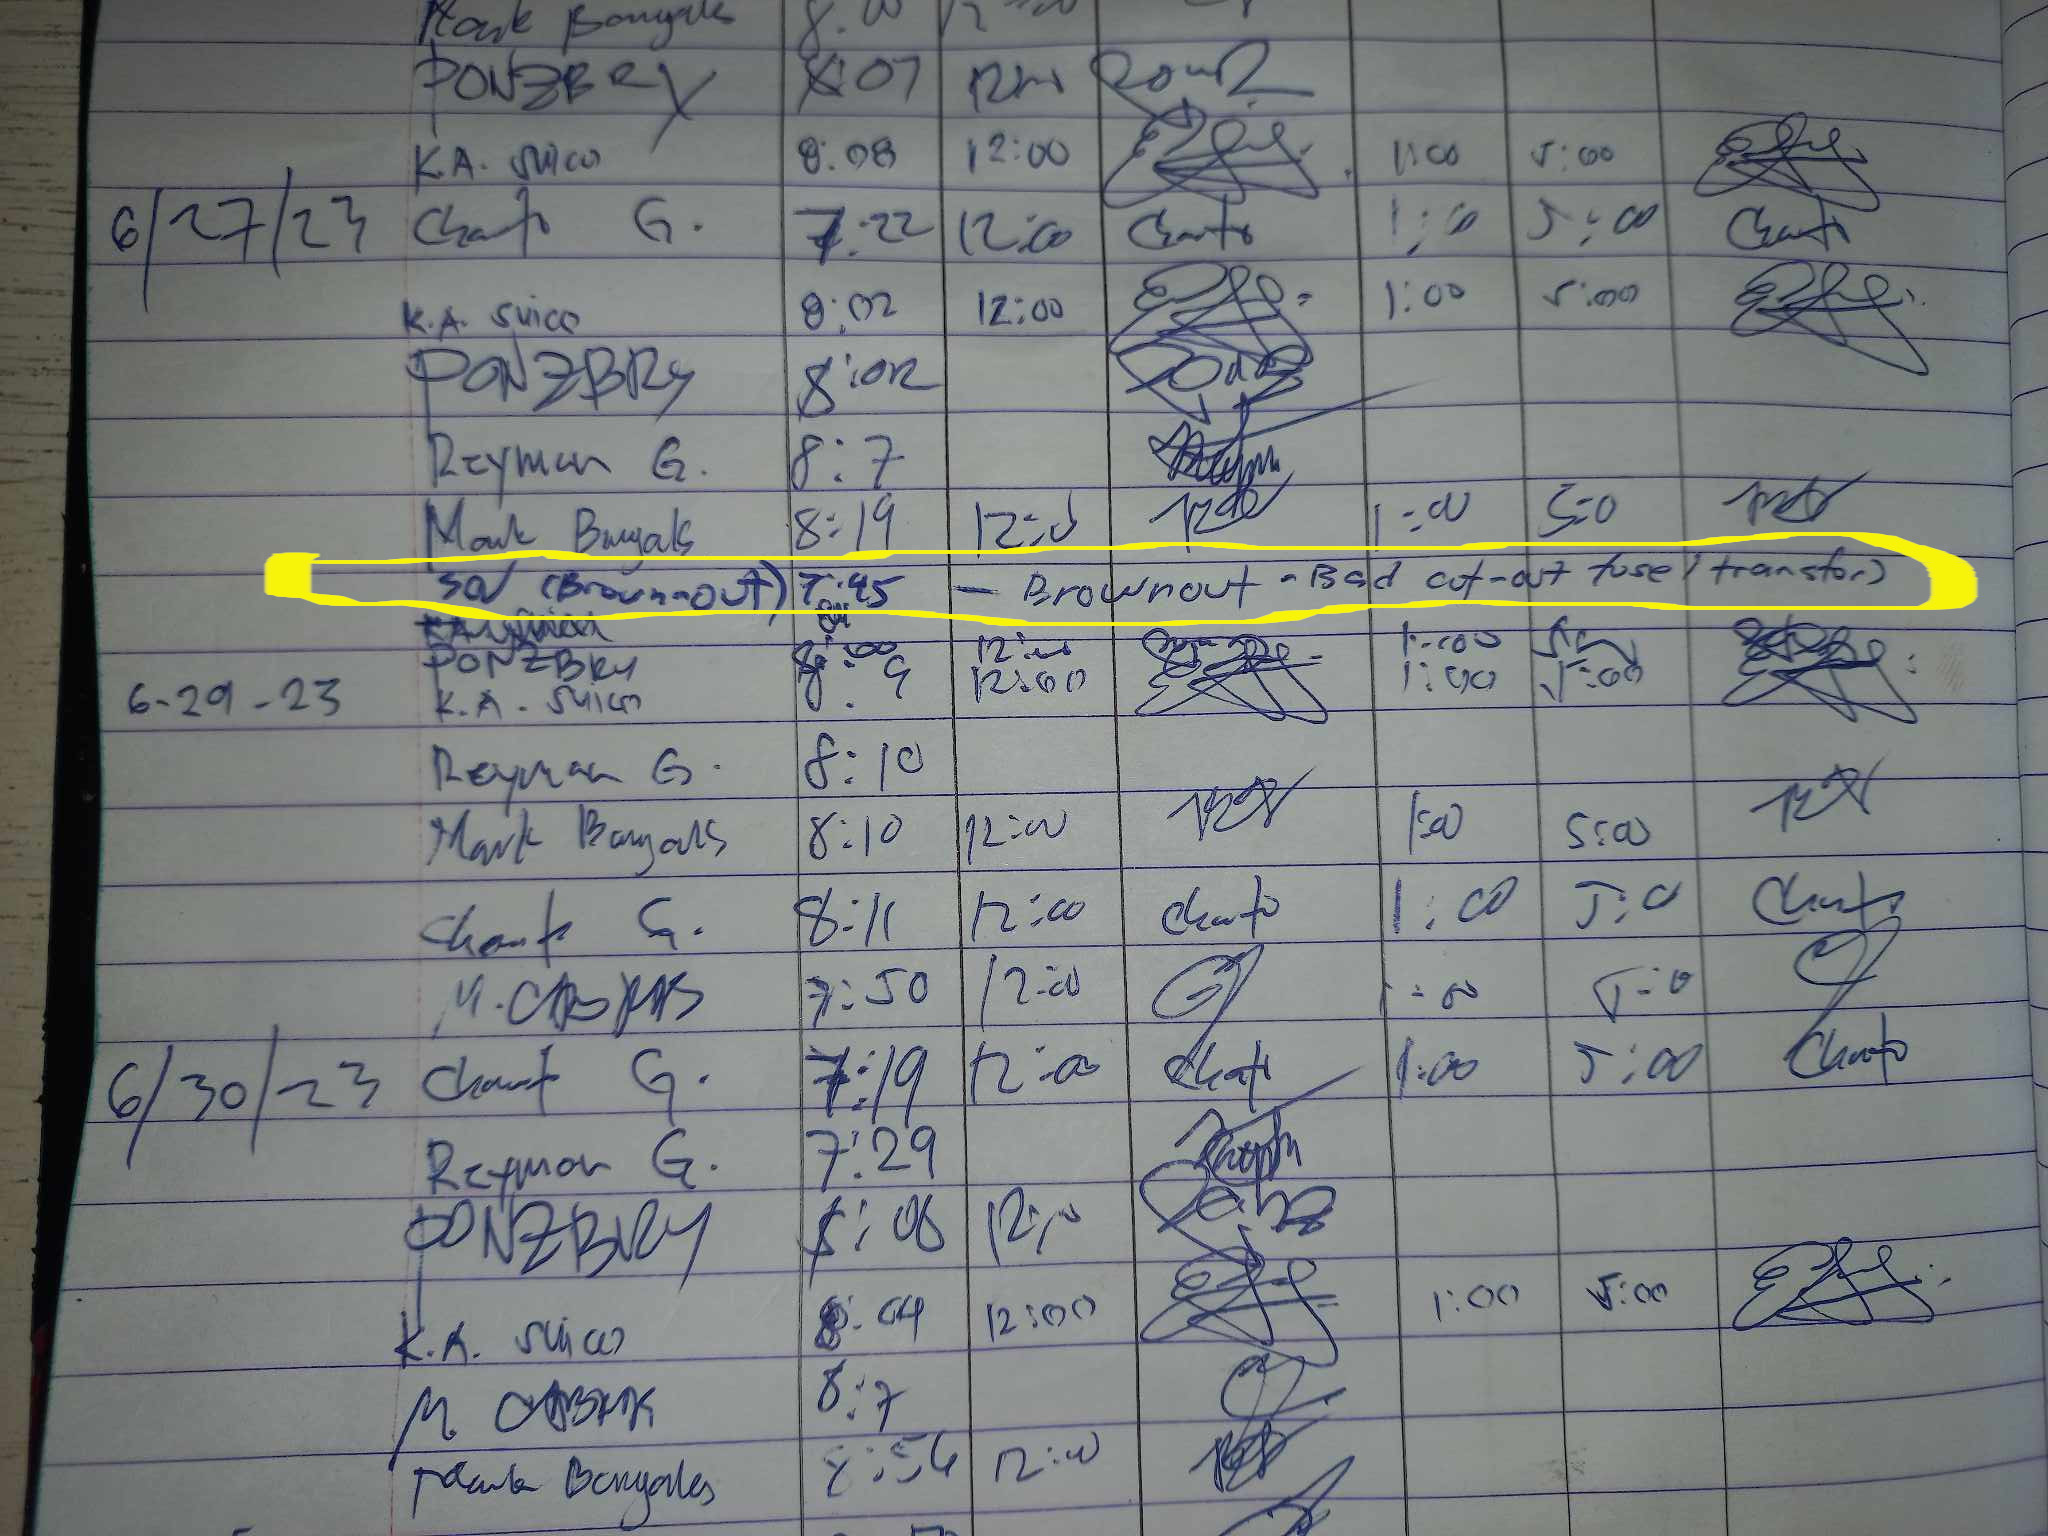 Mark Bongales 8:00 12:00
PONZBRY 8:07 12
K.A. Suico 8:08 12:00 1:00 5:00
6/27/23 Chanto G. 7:22 12:00 Chanto 1:00 5:00 Chanto
K.A. Suico 8:02 12:00 1:00 5:00
PONZBRY 8:02
Reyman G. 8:7
Mark Bongales 8:19 12:0 1:00 5:0
(Brown-out) 7:45 - Brownout - Bad cut-out fuse (transfor)
PONZBRY 8:00 12:00 1:00
6-29-23 K.A. Suico 8:9 12:00 1:00 5:00
Reyman G. 8:10
Mark Bongales 8:10 12:00 1:00 5:00
Chanto G. 8:11 12:00 Chanto 1:00 5:0 Chanto
M. 7:50 12:00 1:00 5:0
6/30/23 Chanto G. 7:19 12:00 Chanto 1:00 5:00 Chanto
Reyman G. 7:29
PONZBRY 8:06 12:
K.A. Suico 8:04 12:00 1:00 5:00
M. 8:7
Mark Bongales :54 12:00